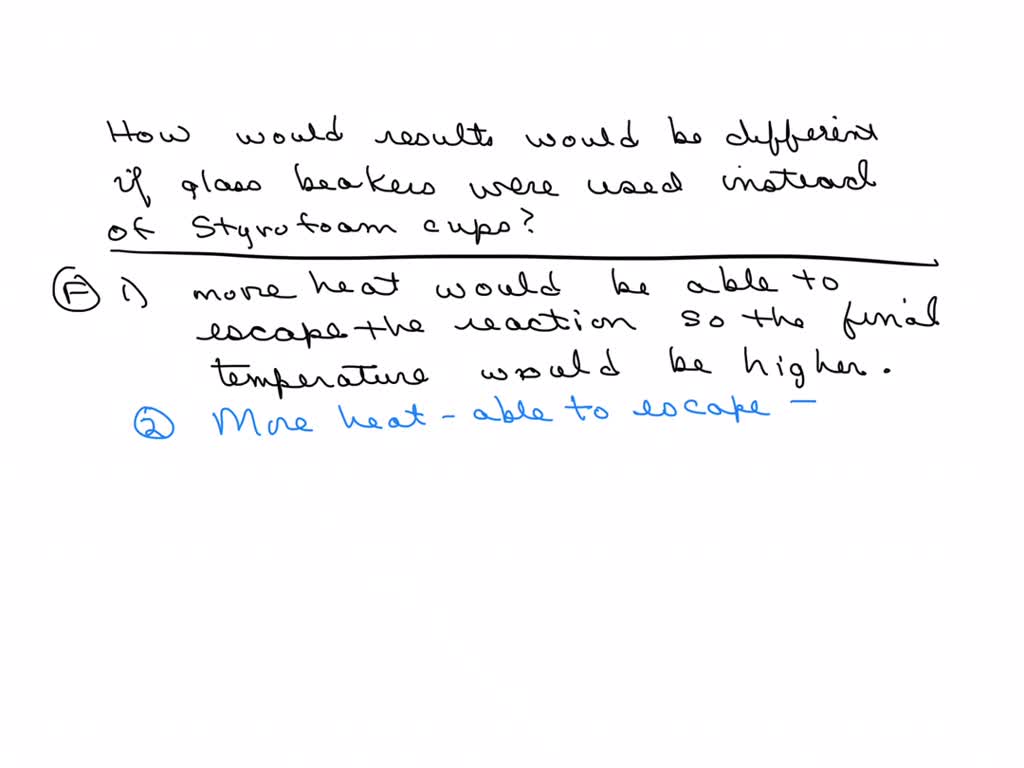 How would results would be different
if glass beakers were used instead
of Styrofoam cups?
F i) more heat would be able to
escape the reaction so the final
temperature would be higher.
2 More heat - able to escape -